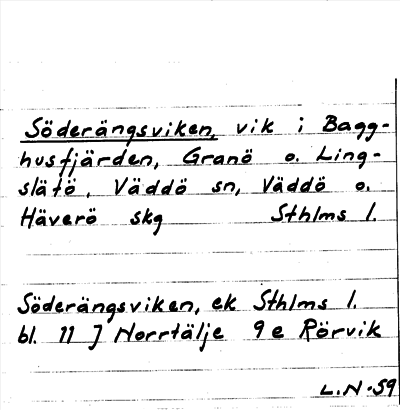 Söderängsviken, vik i Bagg-
husfjärden, Granö o. Ling-
slätö, Väddö sn, Väddö o.
Häverö skg Sthlms l.
Söderängsviken, ek Sthlms l.
bl. 11 J Norrtälje 9e Rörvik
L.N-59